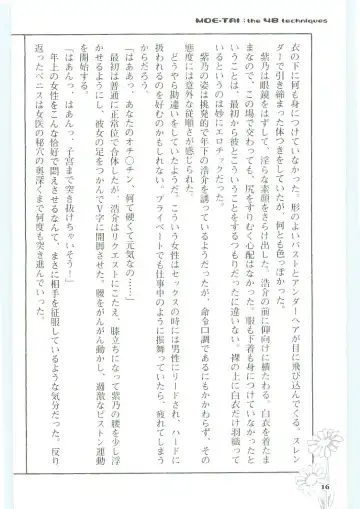 MOE-TAI : the 48 techniques
衣の下に何も身につけていない。形のよいバストとアンダーヘアが目に飛び込んでくる。スレン
ダーで引き締まった体つきをしていたが、何とも色っぽかった。
紫乃は眼鏡をはずして、淫らな素顔をさらけ出した。浩介の前に仰向けに横たわる。白衣を着たま
まなので、この場で交わっても、尻をすりむく心配はなかった。服も下着も身につけていなかったと
いうことは、最初から彼とこういうことをするつもりだったに違いない。裸の上に白衣だけ羽織って
いるというのは妙にエロチックだった。
紫乃の姿は挑発的で年下の浩介を誘っているようだったが、命令口調であるにもかかわらず、その
態度には意外な従順さが感じられた。
どうやら勘違いをしていたようだ。こういう女性はセックスの時には男性にリードされ、ハードに
扱われるのを好むのかもしれない。プライベートでも仕事中のように振舞っていたら、疲れてしまう
からだろう。
「はああっ、あなたのオチ〇チン、何て硬くて元気なの……」
最初は普通に正常位で合体したが、浩介はリクエストにこたえ、膝立ちになって紫乃の腰を少し浮
かせるようにし、彼女の足をつかんでV字に開脚させた。腰をがんがん動かし、過激なピストン運動
をする。
「はあんっ、はあんっ、子宮まで突き抜けちゃいそう！」
年上の女性をこんな恰好で悶えさせるなんて、まさに相手を征服しているような気分だった。反り
返ったペニスは女医の秘穴の奥深くまで何度も突き進んでいった。
16